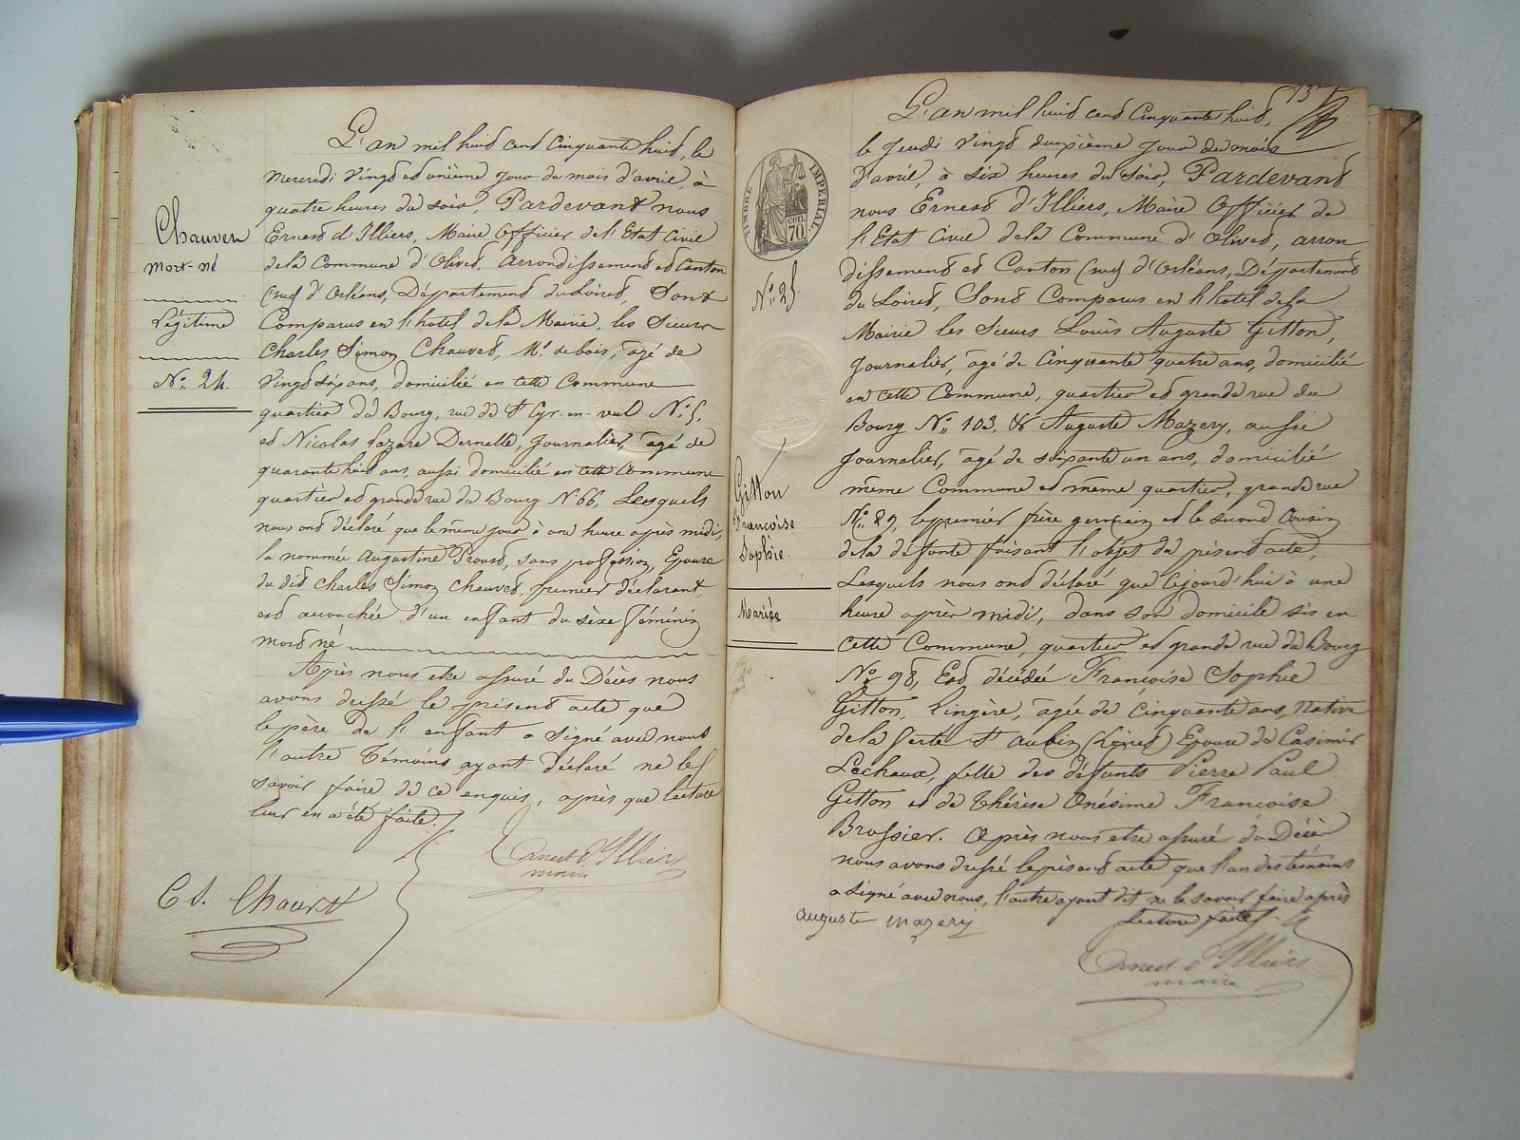 L'an mil huit cent Cinquante huit, le
Mercredi Vingt et unième jour du mois d'avril, à
quatre heures du soir, Pardevant nous
Ernest d'Illiers, Maire Officier de l'Etat Civil
de la Commune d'Olivet, Arrondissement et Canton
(sud) d'Orléans, Département du Loiret, Sont
Comparus en l'hotel de la Mairie, les Sieurs
Charles Simon Chauvet, Md. de bois, âgé de
Vingt sept ans, domicilié en cette Commune
quartier du Bourg, rue de St Cyr-en-val No. 5,
et Nicolas Lazare Dernette, Journalier, âgé de
quarante huit ans, aussi domicilié en cette Commune
quartier et grande rue du Bourg No 66, Lesquels
nous ont déclaré que le même jour à une heure après midi,
la nommée Augustine Proust, sans profession, Epouse
du dit Charles Simon Chauvet, premier déclarant,
est accouchée d'un enfant du sèxe féminin
mort né
Après nous etre assuré du Décès nous
avons dressé le présent acte que
le père de l'enfant a signé avec nous
l'autre Témoins ayant déclaré ne le
savoir faire de ce enquis, après que lecture
leur en a été faite.
Chauvet
mort-né
Légitime
No. 24
Ernest d'Illiers
maire
CS. Chauvet
137
L'an mil huit cent Cinquante huit,
le Jeudi Vingt deuxième jour du mois
d'avril, à six heures du soir, Pardevant
nous Ernest d'Illiers, Maire Officier de
l'Etat Civil de la Commune d'Olivet, arron
dissement et Canton (sud) d'Orléans, Département
du Loiret, Sont Comparus en l'hotel de la
Mairie les Sieurs Louis Auguste Gitton,
Journalier, âgé de Cinquante quatre ans, domicilié
en cette Commune, quartier et grande rue du
Bourg No. 103, & Auguste Mazery, aussi
Journalier, âgé de soixante un ans, domicilié
même Commune et même quartier, grande rue
No. 89, le premier frère germain et le second Cousin
de la défunte faisant l'objet du présent acte,
Lesquels nous ont déclaré que Cejourd'hui à une
heure après midi, dans son domicile sis en
cette Commune, quartier et grande rue du Bourg
No. 98, Est décédée Françoise Sophie
Gitton, Lingère, âgée de Cinquante ans, native
de la ferté St Aubin (Loiret) Epouse de Casimir
Lechaux, fille des défunts Pierre Paul
Gitton et de Thérèse Onésime Françoise
Brossier. Après nous etre assuré du Décès
nous avons dressé le présent acte que l'un des témoins
a signé avec nous, l'autre ayant dit ne le savoir faire après
Lecture faite.
TIMBRE IMPERIAL
70
No. 25
Gitton
Françoise
Sophie
Mariée
auguste mazery
Ernest d'Illiers
maire